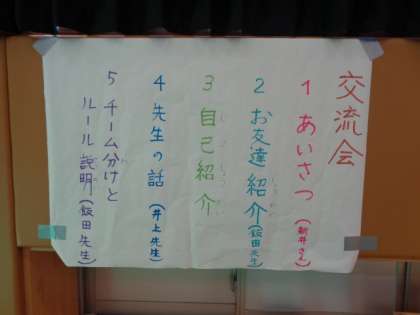 交流会
1 あいさつ (新井さん)
2 お友達紹介 (飯田先生)
3 自己紹介
4 先生の話 (井上先生)
5 チーム分けと
ルール説明 (飯田先生)